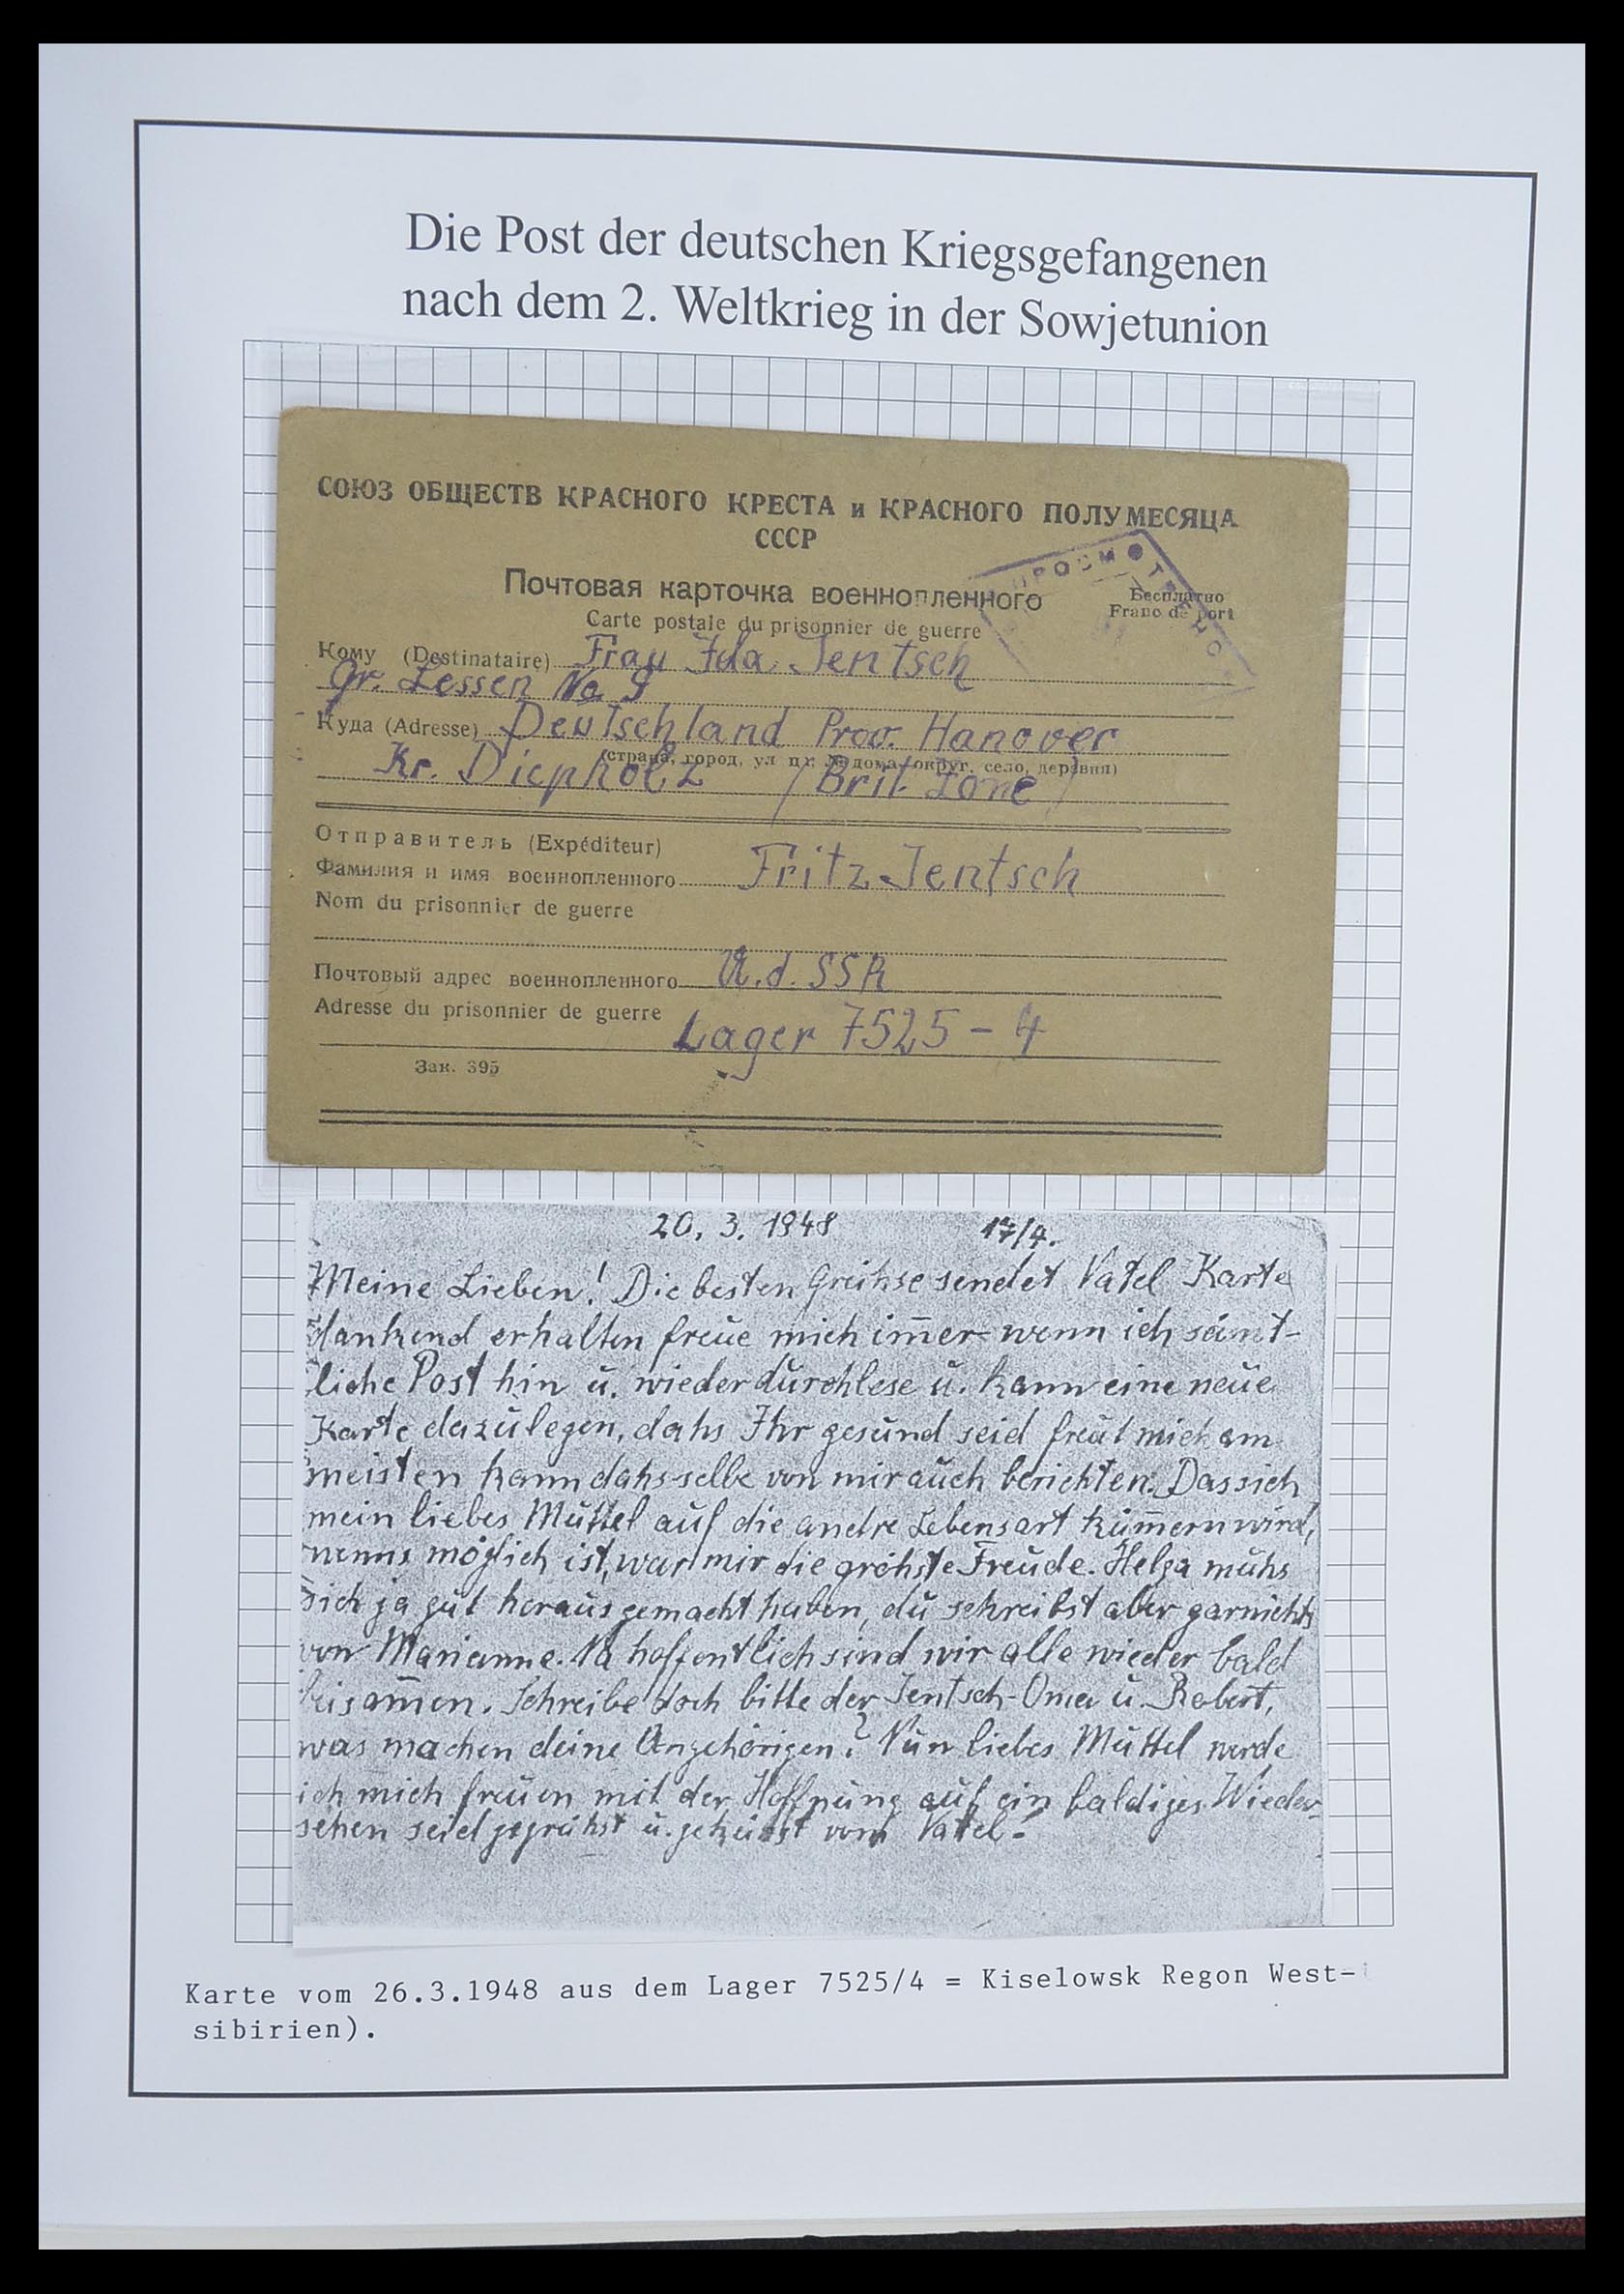 Die Post der deutschen Kriegsgefangenen
nach dem 2. Weltkrieg in der Sowjetunion
СОЮЗ ОБЩЕСТВ КРАСНОГО КРЕСТА и КРАСНОГО ПОЛУМЕСЯЦА
СССР
ПРОСМОТРЕНО
Почтовая карточка военнопленного
Бесплатно
Carte postale du prisonnier de guerre
Franc de port
Кому (Destinataire) Frau Ida Jentsch
Gr. Lessen No. 9
Куда (Adresse) Deutschland Prov. Hanover
(страна, город, ул ица № дома, округ, село, деревня)
Kr. Diepholz / Brit. Zone /
Отправитель (Expéditeur)
Фамилия и имя военнопленного Fritz Jentsch
Nom du prisonnier de guerre
Почтовый адрес военнопленного U.d.SSR
Adresse du prisonnier de guerre
Lager 7525 - 4
Зак. 395
20. 3. 1948 17/4.
Meine Lieben! Die besten Greihse sendet Vatel Karte
dankend erhalten freue mich im̅er wenn ich sämt-
liche Post hin u. wieder durchlese u. kann eine neue
Karte dazulegen, dahs Ihr gesund seid freut mich am
meisten kann dahsselbe von mir auch berichten. Das sich
mein liebes Muttel auf die andre Lebensart küm̅ern wird,
wenns möglich ist, war mir die gröhste Freude. Helga muhs
sich ja gut herausgemacht haben, du schreibst aber garnichts
von Marianne. Na hoffentlich sind wir alle wieder bald
beisam̅en. Schreibe doch bitte der Jentsch-Oma u. Robert,
was machen deine Angehörigen? Nun liebes Muttel werde
ich mich freuen mit der Hoffnung auf ein baldiges Wieder-
sehen seid gegrühst u. geküsst vom Vattel.
Karte vom 26.3.1948 aus dem Lager 7525/4 = Kiselowsk Regon West-
sibirien).